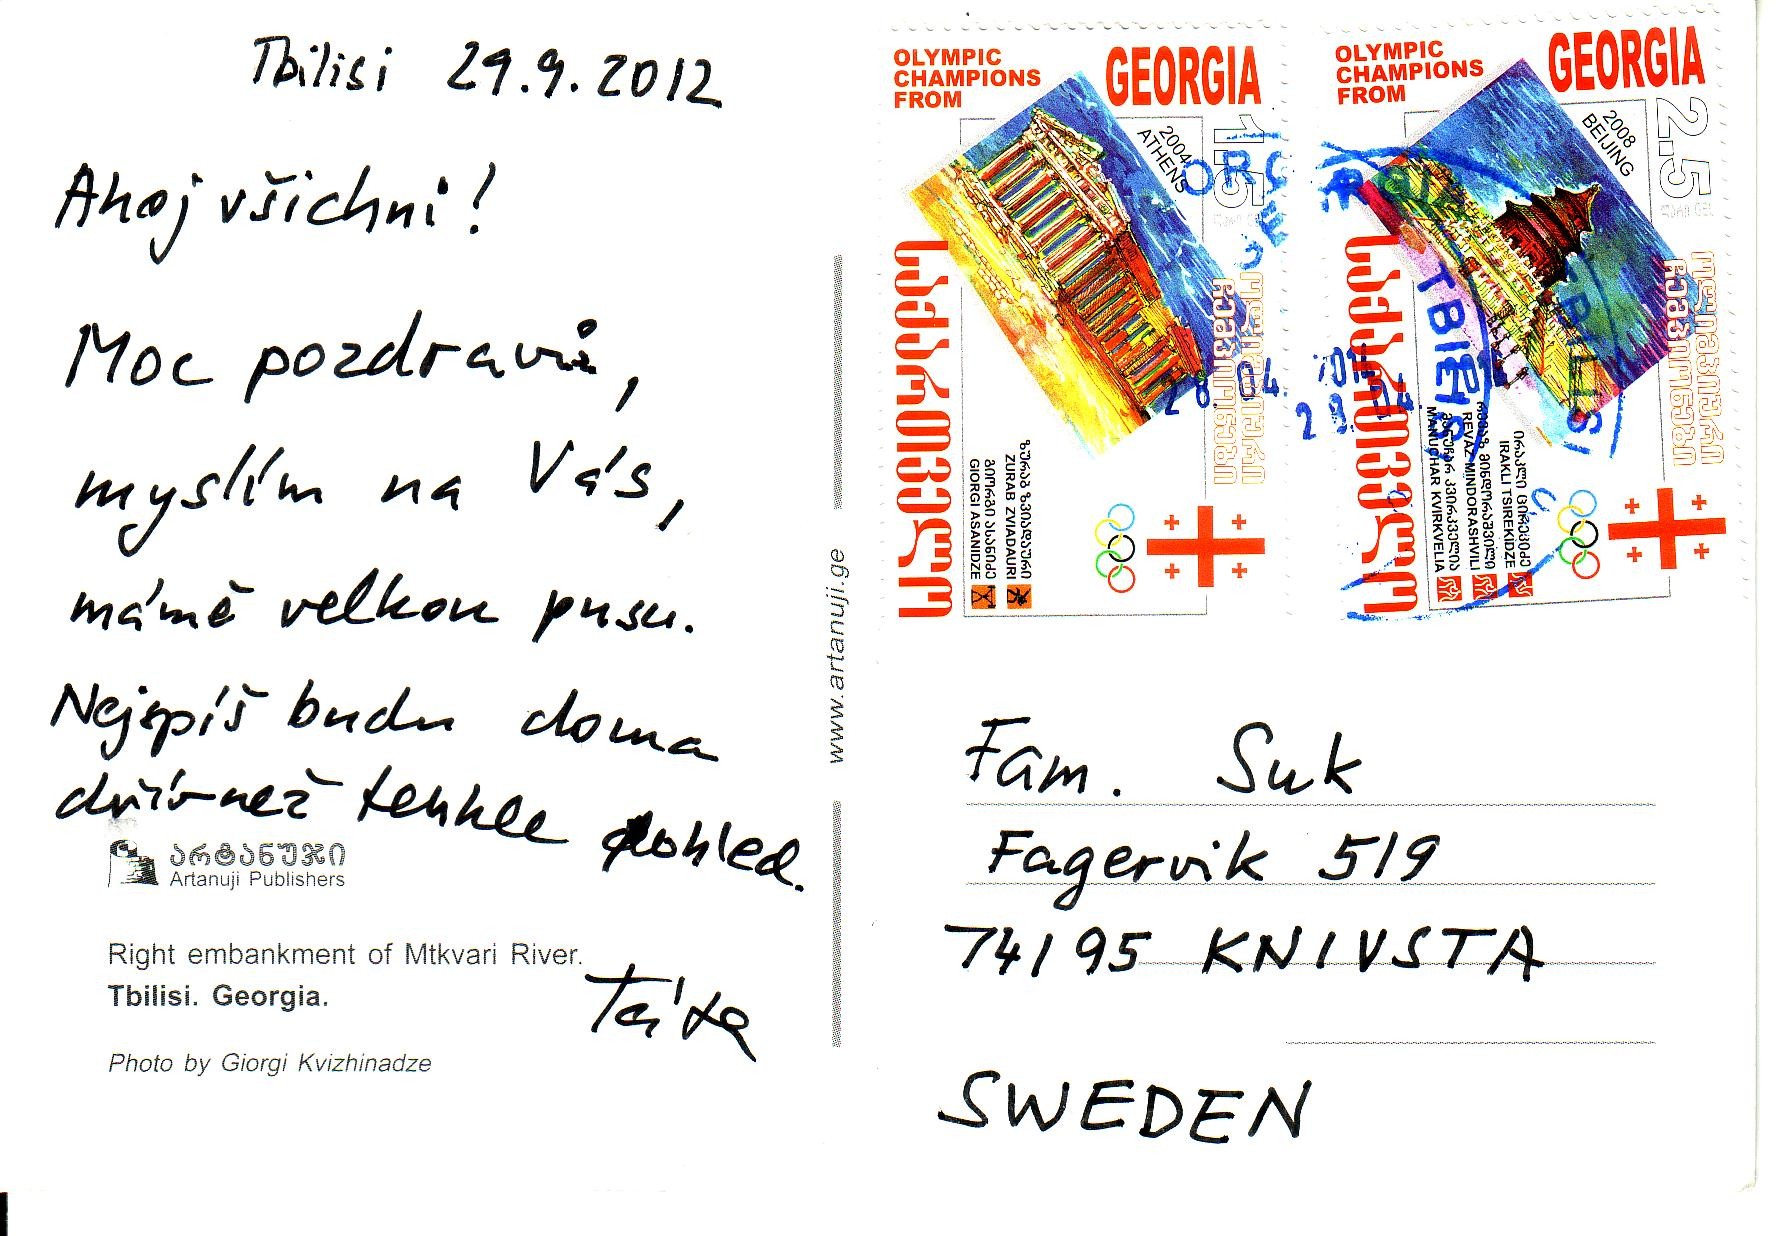 Tbilisi 29.9.2012
Ahoj všichni!
Moc pozdravů,
myslím na Vás,
mámě velkou pusu.
Nejspíš budu doma
dřív než tenhle pohled.
Táta
არტანუჯი
Artanuji Publishers
Right embankment of Mtkvari River.
Tbilisi. Georgia.
Photo by Giorgi Kvizhinadze
www.artanuji.ge
OLYMPIC
CHAMPIONS
FROM
GEORGIA
1.5
2004
ATHENS
საქართველო
ოლიმპიური
ჩემპიონები
ზურაბ ზვიადაური
ZURAB ZVIADAURI
გიორგი ასანიძე
GIORGI ASANIDZE
OLYMPIC
CHAMPIONS
FROM
GEORGIA
2.5
ლარი GEL
2008
BEIJING
საქართველო
ოლიმპიური
ჩემპიონები
ირაკლი ცირეკიძე
IRAKLI TSIREKIDZE
რევაზ მინდორაშვილი
REVAZ MINDORASHVILI
მანუჩარ კვირკველია
MANUCHAR KVIRKVELIA
TBILISI
Fam. Suk
Fagervik 519
74195 KNIVSTA
SWEDEN